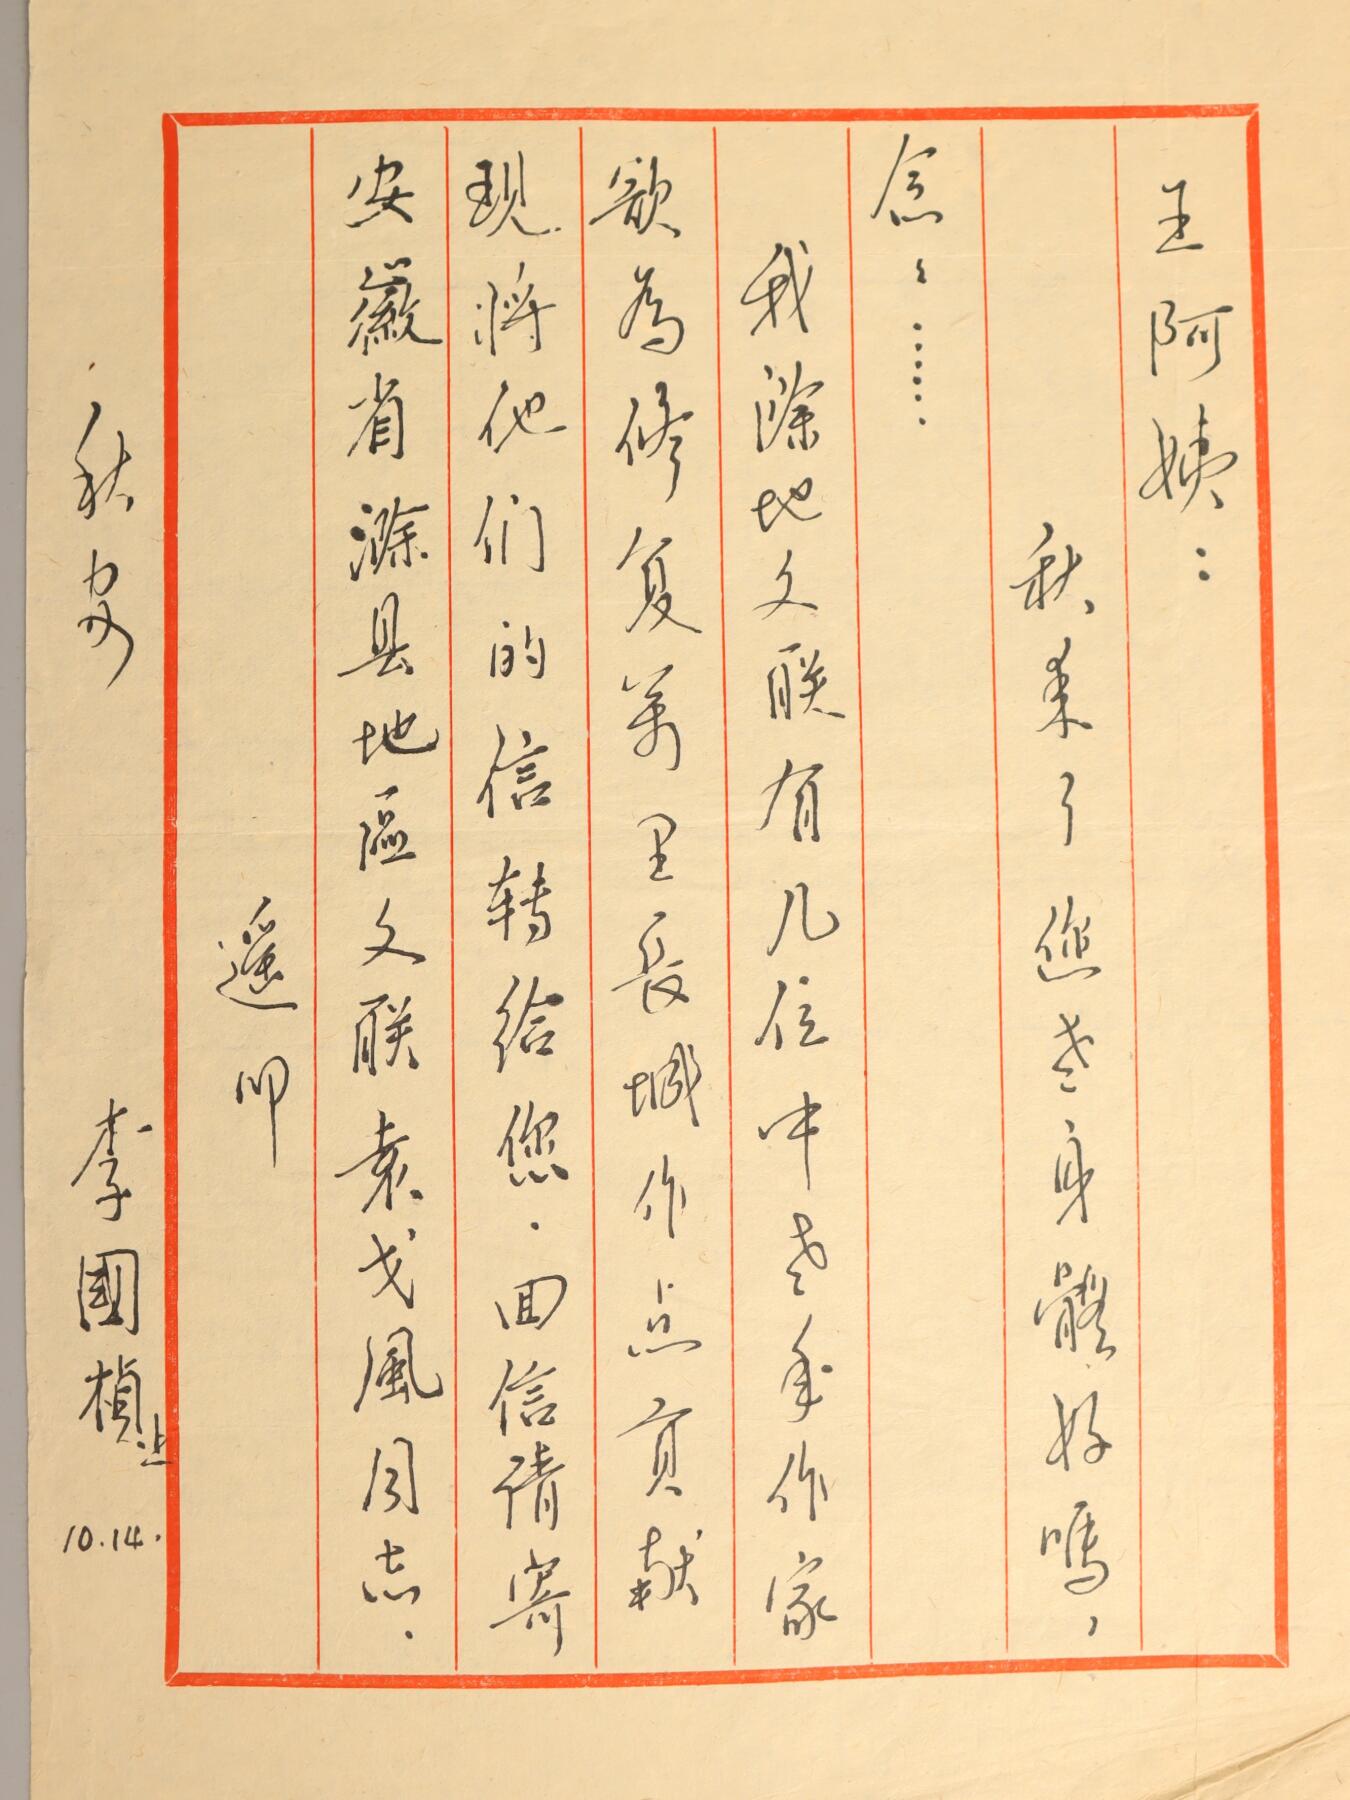 王阿姨：
秋来了您老身体好吗，
念々……
我滁地文联有几位中老年作家
欲為修复萬里長城作点貢献
現将他们的信转给您．回信请寄
安徽省滁县地區文联袁戈風同志．
遥叩
秋安
李國楨上
10.14.